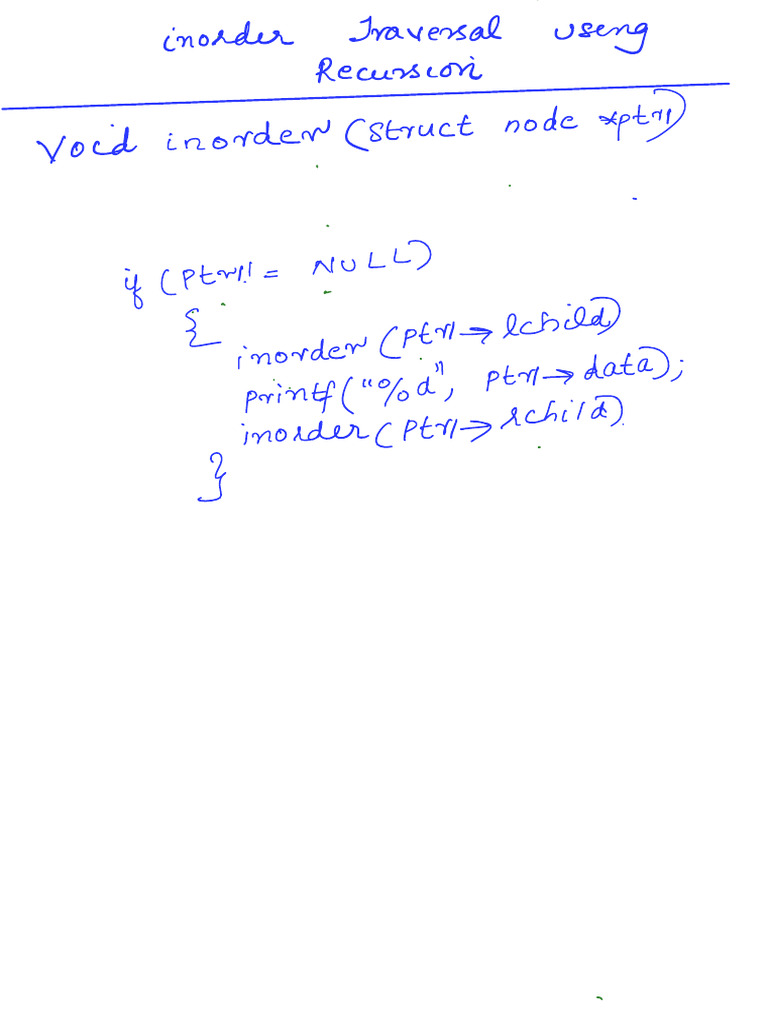 inorder Traversal using
Recursion
Void inorder (struct node *ptr)
if (Ptr != NULL)
{
inorder (ptr→lchild)
printf("%d", ptr→data);
inorder (ptr→rchild)
}